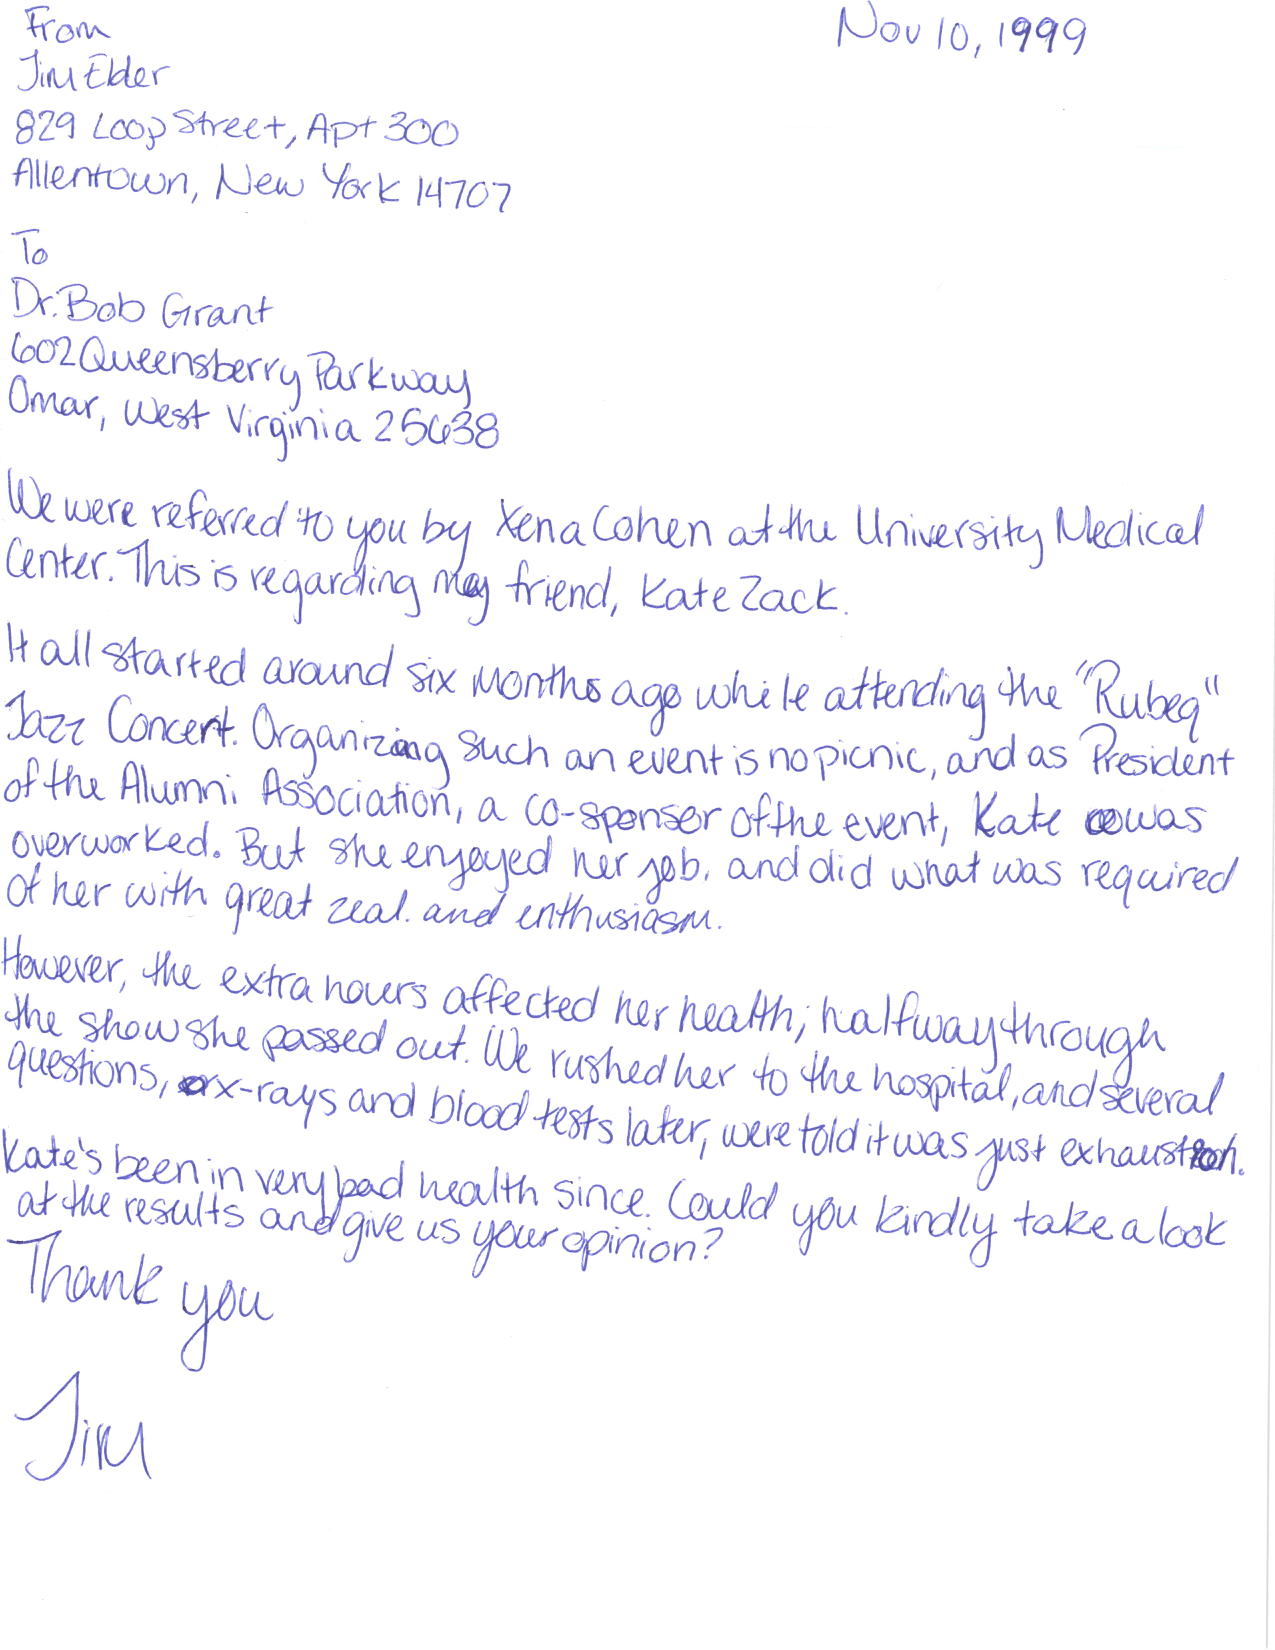 From
Nov 10, 1999
Jim Elder
829 Loop Street, Apt 300
Allentown, New York 14707
To
Dr. Bob Grant
602 Queensberry Parkway
Omar, West Virginia 25638
We were referred to you by Xena Cohen at the University Medical
Center. This is regarding my friend, Kate Zack.
It all started around six months ago while attending the "Rubeq"
Jazz Concert. Organizing such an event is no picnic, and as President
of the Alumni Association, a co-sponser of the event, Kate was
overworked. But she enjoyed her job, and did what was required
of her with great zeal. and enthusiasm.
However, the extra hours affected her health; halfway through
the show she passed out. We rushed her to the hospital, and several
questions, x-rays and blood tests later, were told it was just exhaustion.
Kate's been in very bad health since. Could you kindly take a look
at the results and give us your opinion?
Thank you
Jim